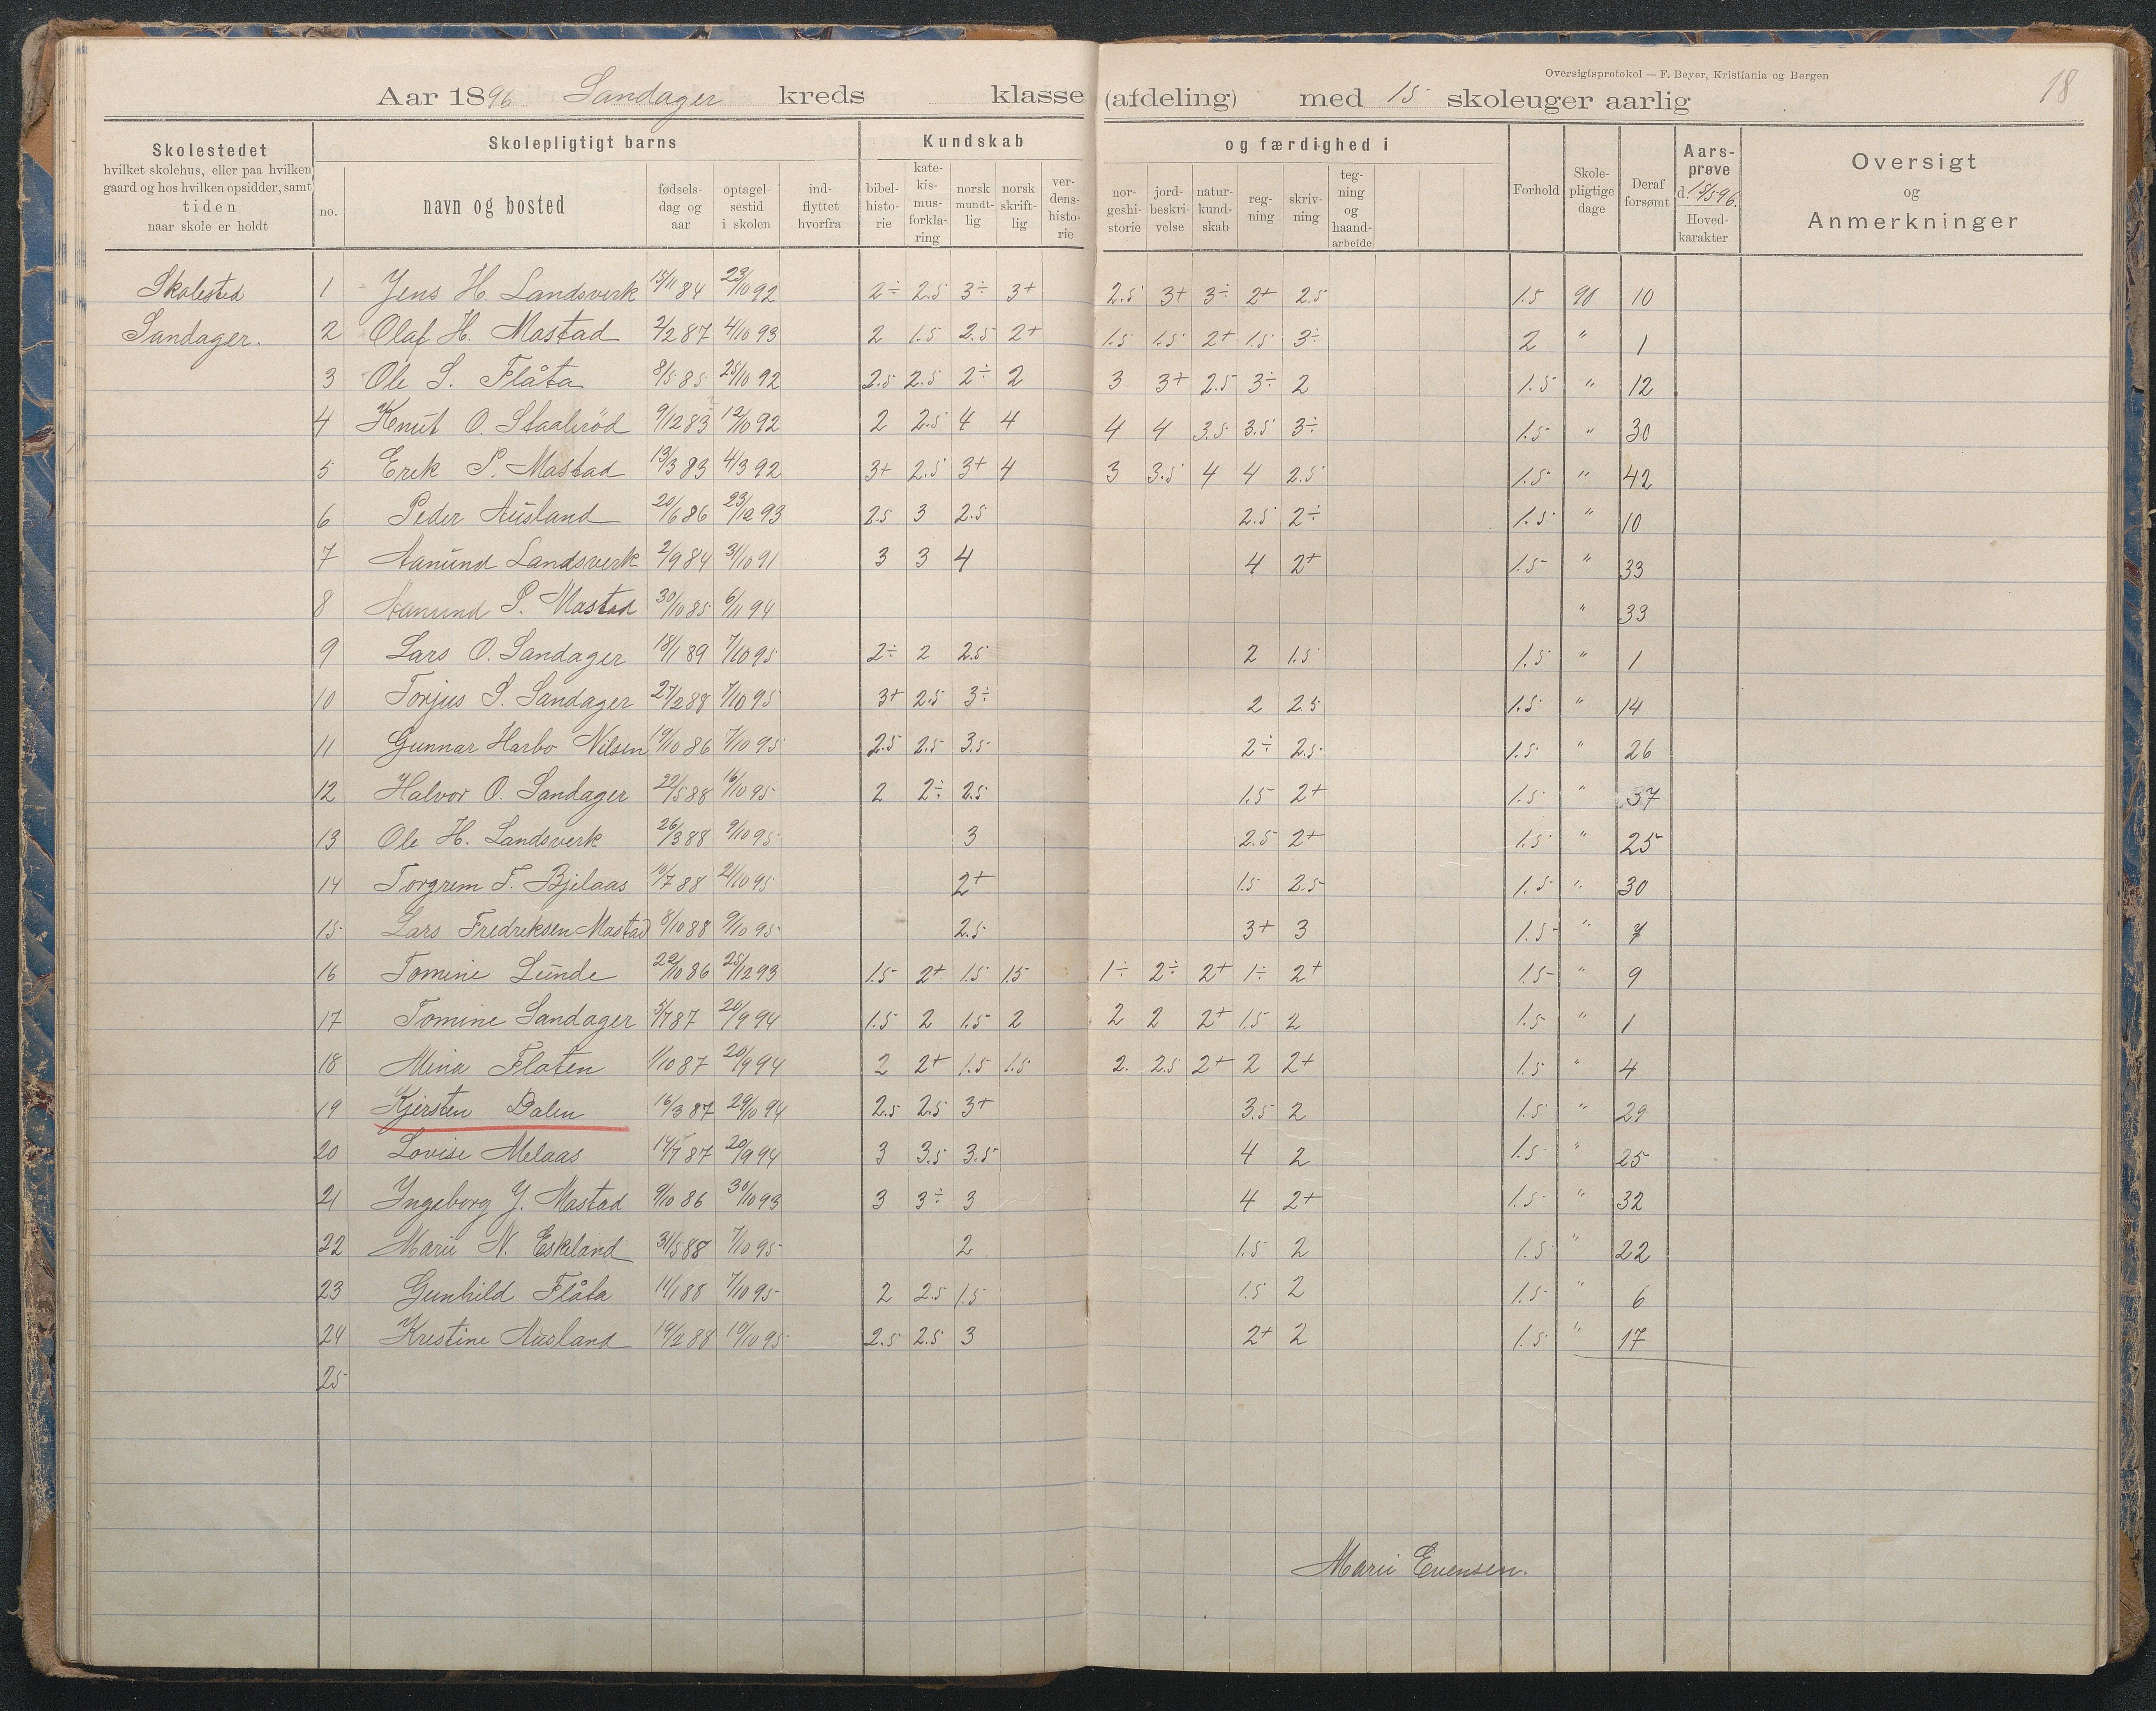 Oversigtsprotokol — F. Beyer, Kristiania og Bergen
18
Aar 1896 Sandager kreds klasse (afdeling) med 15 skoleuger aarlig
Skolestedet hvilket skolehus, eller paa hvilken gaard og hos hvilken opsidder, samt tiden naar skole er holdt
Skolepligtigt barns
no. navn og bosted fødselsdag og aar optagelsestid i skolen indflyttet hvorfra
Kundskab og færdighed i
bibelhistorie katekismusforklaring norsk mundtlig norsk skriftlig verdenshistorie norgeshistorie jordbeskrivelse naturkundskab regning skrivning tegning og haandarbeide
Forhold Skolepligtige dage Deraf forsømt Aarsprøve d. 15/5 96. Hovedkarakter
Oversigt og Anmerkninger
Skolested 1 Jens H. Landsverk 15/11 84 23/10 92 2÷ 2.5 3÷ 3+ 2.5 3+ 3÷ 2+ 2.5 1.5 90 10
Sandager. 2 Olaf H. Mastad 2/2 87 4/10 93 2 1.5 2.5 2+ 1.5 1.5 2+ 1.5 3÷ 2 " 1
3 Ole S. Flåta 8/5 85 25/10 92 2.5 2.5 2÷ 2 3 3+ 2.5 3÷ 2 1.5 " 12
4 Knut O. Staalerød 9/12 83 12/10 92 2 2.5 4 4 4 4 3.5 3.5 3÷ 1.5 " 30
5 Erik P. Mastad 13/3 83 4/3 92 3+ 2.5 3+ 4 3 3.5 4 4 2.5 1.5 " 42
6 Peder Ausland 20/6 86 23/12 93 2.5 3 2.5 2.5 2÷ 1.5 " 10
7 Aanund Landsverk 2/9 84 31/10 91 3 3 4 4 2+ 1.5 " 33
8 Aanund P. Mastad 30/10 85 6/11 94 " 33
9 Lars O. Sandager 18/1 89 7/10 95 2÷ 2 2.5 2 1.5 1.5 " 1
10 Torjus S. Sandager 27/2 88 7/10 95 3+ 2.5 3÷ 2 2.5 1.5 " 14
11 Gunnar Harbo Nilsen 19/10 86 7/10 95 2.5 2.5 3.5 2÷ 2.5 1.5 " 26
12 Halvor O. Sandager 22/5 88 16/10 95 2 2÷ 2.5 1.5 2+ 1.5 " 37
13 Ole H. Landsverk 26/3 88 9/10 95 3 2.5 2+ 1.5 " 25
14 Torgrem T. Bjelaas 10/7 88 21/10 95 2+ 1.5 2.5 1.5 " 30
15 Lars Fredriksen Mastad 8/10 88 9/10 95 2.5 3+ 3 1.5 " 7
16 Tomine Lunde 22/10 86 25/12 93 1.5 2+ 1.5 1.5 1÷ 2÷ 2+ 1÷ 2+ 1.5 " 9
17 Tomine Sandager 5/7 87 20/9 94 1.5 2 1.5 2 2 2 2+ 1.5 2 1.5 " 1
18 Mina Flaten 1/10 87 20/9 94 2 2+ 1.5 1.5 2. 2.5 2+ 2 2+ 1.5 " 4
19 Kjersten Dalen 16/3 87 29/10 94 2.5 2.5 3+ 3.5 2 1.5 " 29
20 Lovise Melaas 14/7 87 20/9 94 3 3.5 3.5 4 2 1.5 " 25
21 Ingeborg J. Mastad 9/10 86 30/10 93 3 3÷ 3 4 2+ 1.5 " 32
22 Marie N. Eskeland 31/5 88 7/10 95 2 1.5 2 1.5 " 22
23 Gunhild Flåta 11/1 88 7/10 95 2 2.5 1.5 1.5 2 1.5 " 6
24 Kristine Ausland 19/2 88 10/10 95 2.5 2.5 3 2+ 2 1.5 " 17
25
Marie Evensen.